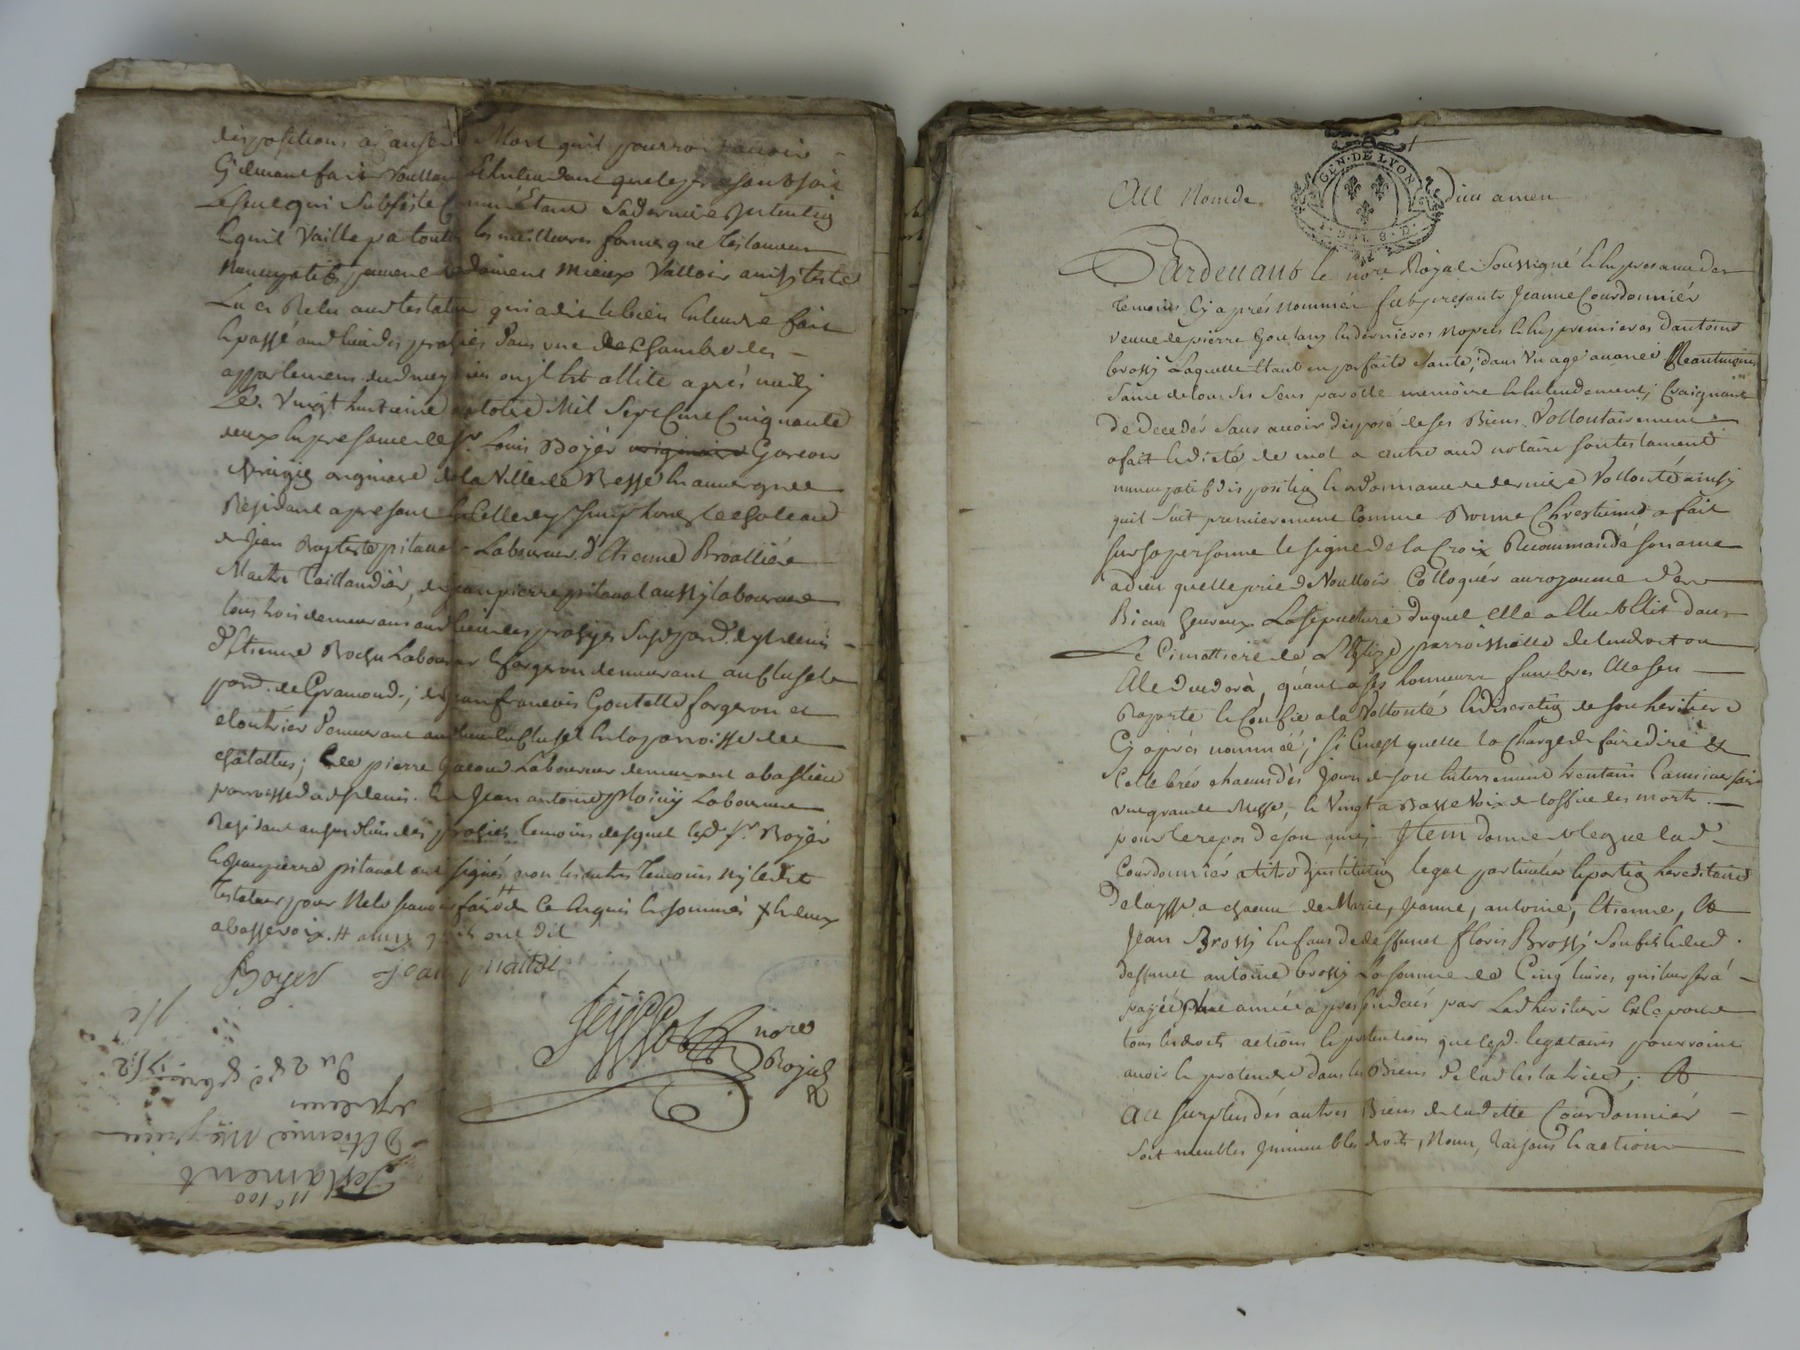 dispositions a cause de Mort quil pourroit avoir
Cydevant fait voullant Et Entendant que le present soit
Le seul qui subsiste Comme Etant Sa derniere Intention
Et quil vaille par toutes les meilleures formes que testament
nuncupatif peuvent et doivent mieux valloir ainsy teste
Lu et Relu aud testateur qui a dit le bien Entendre fait
Et passé aud lieu des prohies Dans une de Chambre des
appartemens dud mey ou il Est allité après midy
Le. Vingt huitieme octobre Mil Sept Cent Cinquante
deux En presence de Sr. Louis Boyer originaire Garcon
Chirugien originaire de la Ville de Besse En auvergne
Residant a present En Celle de St simphorien le Chateau
de Jean Baptiste pitaval Laboureur d'Etienne
Maitre Taillandier, de Jean pierre pitaval aussy laboureur
tous trois demeurants aud lieu des prohies Susd. parr. de St denis
d'Etienne Laboureur Et forgeron demeurant au Cluzel
parr. de Gramond; de Jean francois Goutelle forgeron et
cloutrier Demeurant aud lieu du Cluzel En la parroisse de
Chatellus; de pierre Laboureur demeurant a
parroisse dud St denis. Et de Jean antoine Laboureur
Residant aud lieu des prohies temoins desquels led. Sr. Boyer
Et Jean pierre pitaval ont signés non les autres temoins ny ledit
testateur pour Ne le scavoir faire de Ce Enquis Et sommés
a basse voix. # ainsy quils ont dit
Boyer Jean pitaval
nore
Royal
n° 100
Testament
D'Etienne
St denis
Du 28e. 8bre. 1752
GEN. DE LYON
Au Nom de Dieu amen
Pardevant le nore. Royal Soussigné Et En presence des
temoins Cy après nommés fut presente Jeanne Courdonnier
veuve de pierre En dernieres nopces Et En premieres d'antoine
brossy Laquelle Etant en parfaite santé, dans Un age avancé Neantmoins
Saine de tous ses Sens parolle memoire Et Entendement; Craignant
de deceder Sans avoir disposé de ses Biens Vollontairement
a fait Et dicté de mot a autre aud notaire son testament
nuncupatif disposition Et ordonnance de derniere Vollonté ainsy
quil suit premierement Comme Bonne Chrestienne a fait
sur sa personne le signe de la Croix Recommandé son ame
a dieu quelle prie de Voulloir Colloquer au royaume des
Bien heureux La sepulture duquel Elle a Elu Et Elit dans
Le Cimettiere de L'Eglise parroissialle de lendroit ou
Elle decedera, quant a ses honneurs funebres Elle sen
Raporte Et Confie a la Vollonté Et discretion de son heritiere
Cy après nommée; si Cenest quelle la Charge de faire dire Et
Cellebrer chacuns des Jours de son Enterrement trentain Et anniversaire
une grande Messe, Et Vingt a Basse Voix de loffice des morts.
pour le repos de son ame; Item donne Et legue lad.
Courdonnier a titre d'institution legat particulier Et portion hereditaire
De la ysse a chacuns de Marie, Jeanne, antoine, Etienne, Et
Jean Brossy Enfans de deffunct floris Brossy son fils Et dud.
deffunct antoine brossy La somme de Cinq livres qui leur sera
payée Une année après son decés par Lad heritiere Et Ce pour
tous les droits actions Et pretentions que lesd. legataires pourroint
avoir Et pretendre dans les Biens De lad testatrice; Et
Au surplus des autres Biens de ladite Courdonnier
Soit meubles Immeubles droits, Noms, Raisons Et actions